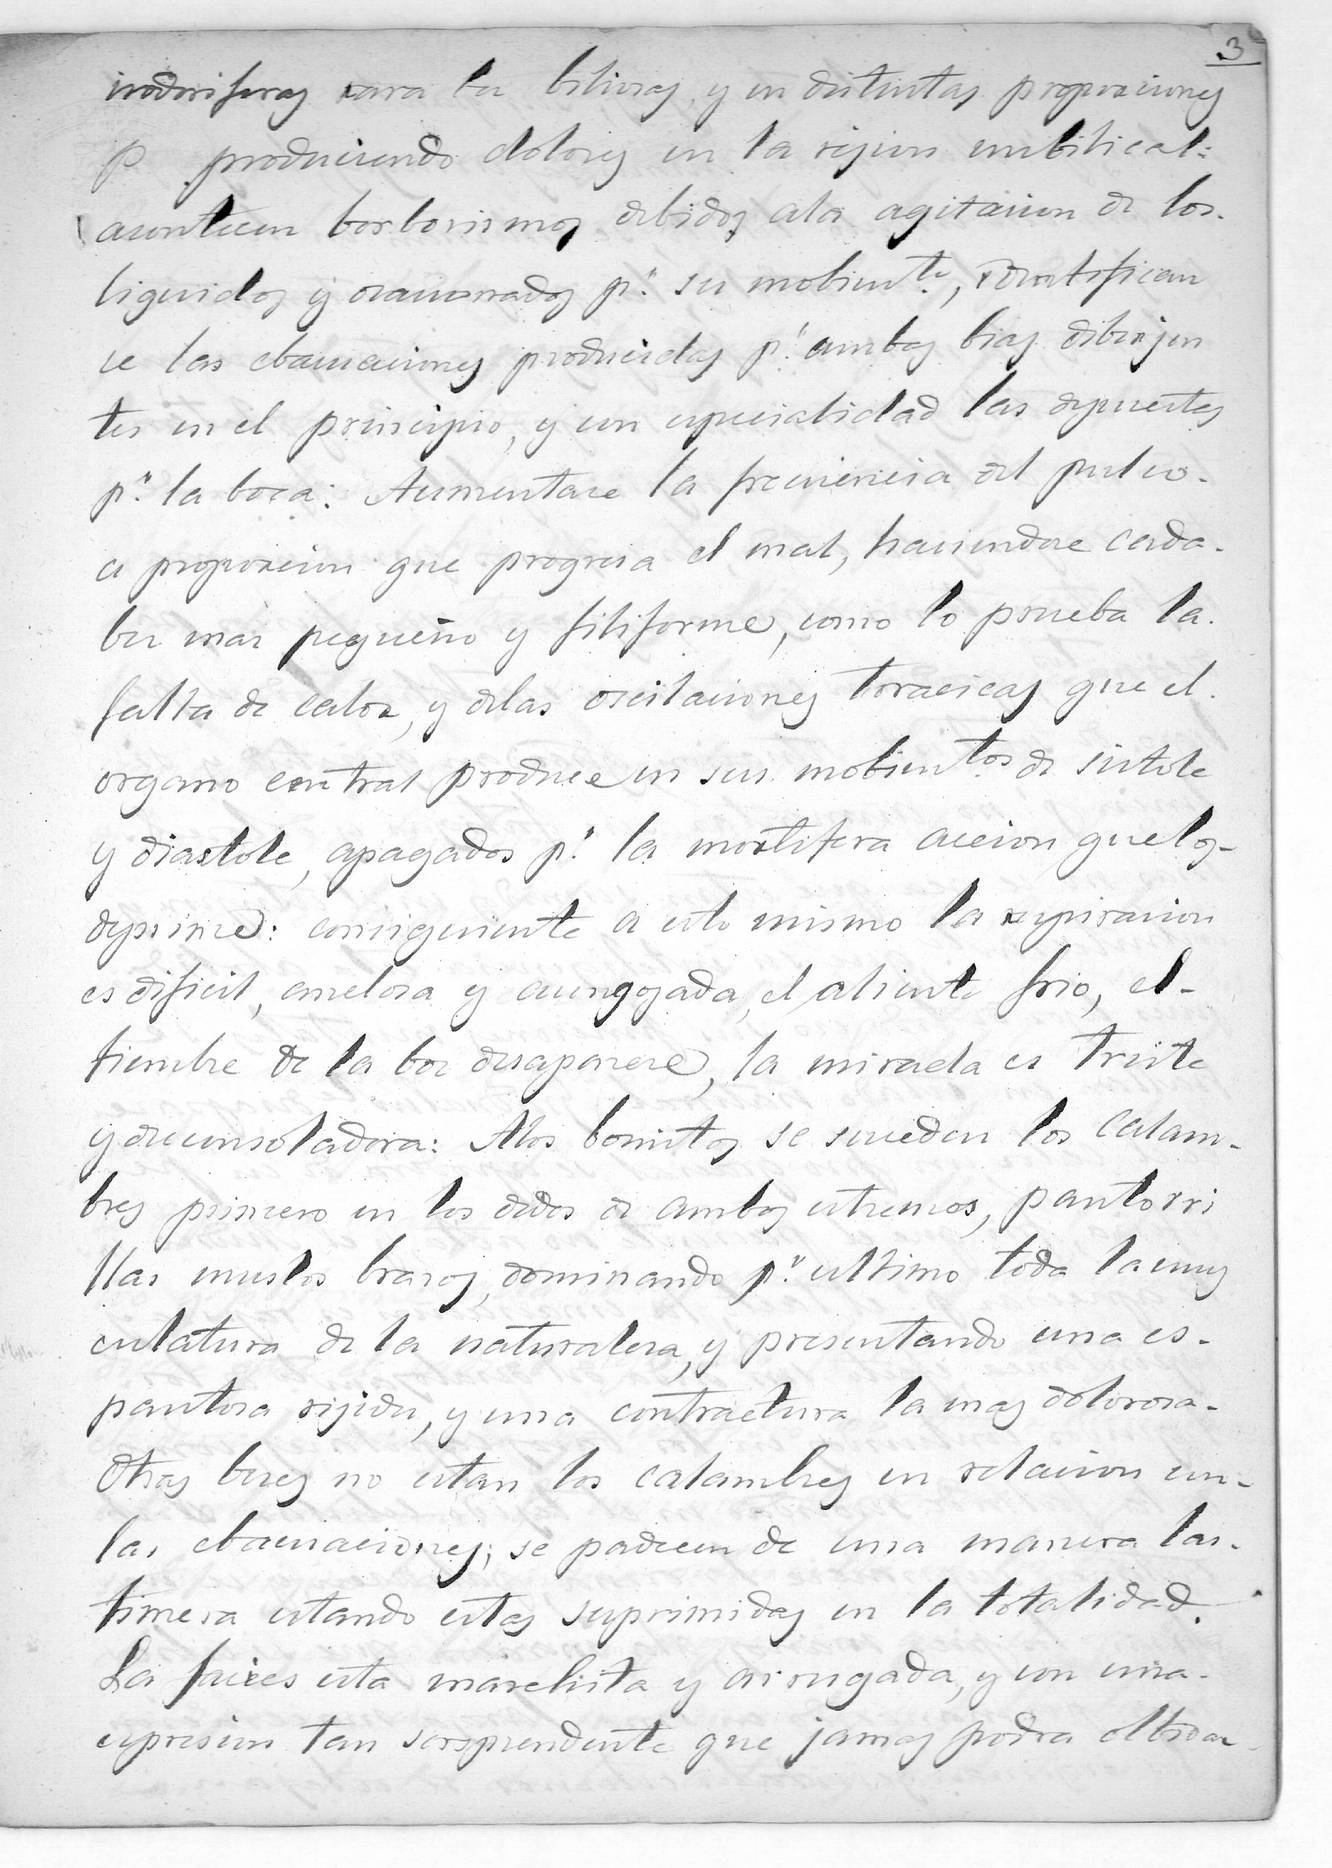 3
inodoriferas rara bes biliosas, y en distintas proporciones
p produciendo dolores en la rejion umbilical:
acontecen borborismos debidos ala agitacion de los
liquidos y ocacionados pr. su mobimto.,
se las ebacuaciones producidas pr. ambas bias
tes en el principio, y con especialidad las depuestas
pr. la boca: Aumentase la frecuencia del pulso
a proporcion que progresa el mal, haciendose cada
bes mas pequeño y filiforme, como lo prueba la
falta de calor, y delas oscilaciones toracicas que el
organo central produce en sus mobimientos de sistole
y diastole, apagados pr. la mortifera accion que los
deprime: consiguiente a esto mismo la respiracion
es dificil, anelosa y acongojada, el aliento frio, el
tiembre de la boz desaparese, la mirada es triste
y desconsoladora: Alos bomitos se suceden los calam-
bres primero en los dedos de ambos estremos, pantorri
llas muslos brasos, dominando pr. ultimo toda la mus
culatura de la naturalesa, y presentando una es-
pantosa rijides, y una contractura la mas dolorosa-
Otras beces no estan los calambres en relacion con-
las ebacuaciones; se padecen de una manera las-
timera estando estas suprimidas en la totalidad.
La facies esta marchita y arrugada, y con una
espresion tan sorsprendente que jamas podra olbidar